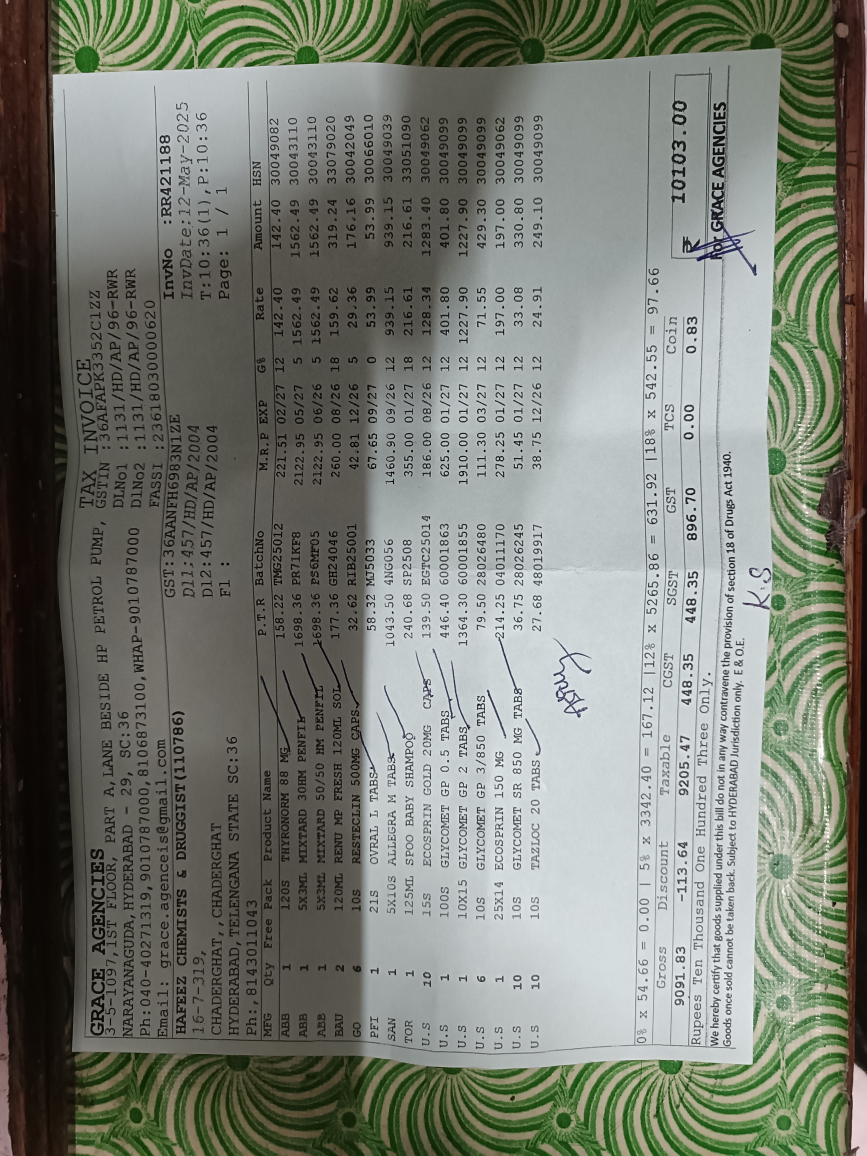 TAX INVOICE
GRACE AGENCIES
3-5-1097,1ST FLOOR, PART A,LANE BESIDE HP PETROL PUMP, GSTIN :36AFAPK3352C1ZZ
NARAYANAGUDA,HYDERABAD - 29, SC:36 DLNo1 :1131/HD/AP/96-RWR
Ph:040-40271319,9010787000,8106873100,WHAP-9010787000 DlNo2 :1131/HD/AP/96-RWR
Email: grace.agenceis@gmail.com FASSI :23618030000620
HAFEEZ CHEMISTS & DRUGGIST(110786) GST:36AANFH6983N1ZE InvNo :RR421188
16-7-319, Dl1:457/HD/AP/2004 InvDate:12-May-2025
CHADERGHAT,,CHADERGHAT Dl2:457/HD/AP/2004 T:10:36(1),P:10:36
HYDERABAD,TELENGANA STATE SC:36 Fl : Page: 1 / 1
Ph:,8143011043
MFG Qty Free Pack Product Name P.T.R BatchNo M.R.P EXP G% Rate Amount HSN
ABB 1 120S THYRONORM 88 MG 158.22 TMG25012 221.51 02/27 12 142.40 142.40 30049082
ABB 1 5X3ML MIXTARD 30HM PENFIL 1698.36 PR71KF8 2122.95 05/27 5 1562.49 1562.49 30043110
ABB 1 5X3ML MIXTARD 50/50 HM PENFIL 1698.36 PS6MF05 2122.95 06/26 5 1562.49 1562.49 30043110
BAU 2 120ML RENU MP FRESH 120ML SOL 177.36 GH24046 260.00 08/26 18 159.62 319.24 33079020
GO 6 10S RESTECLIN 500MG CAPS 32.62 RIB25001 42.81 12/26 5 29.36 176.16 30042049
PFI 1 21S OVRAL L TABS 58.32 MJ5033 67.65 09/27 0 53.99 53.99 30066010
SAN 1 5X10S ALLEGRA M TABS 1043.50 4NG056 1460.90 09/26 12 939.15 939.15 30049039
TOR 1 125ML SPOO BABY SHAMPOO 240.68 SP2508 355.00 01/27 18 216.61 216.61 33051090
U.S 10 15S ECOSPRIN GOLD 20MG CAPS 139.50 EGTC25014 186.00 08/26 12 128.34 1283.40 30049062
U.S 1 100S GLYCOMET GP 0.5 TABS 446.40 60001863 625.00 01/27 12 401.80 401.80 30049099
U.S 1 10X15 GLYCOMET GP 2 TABS 1364.30 60001855 1910.00 01/27 12 1227.90 1227.90 30049099
U.S 6 10S GLYCOMET GP 3/850 TABS 79.50 28026480 111.30 03/27 12 71.55 429.30 30049099
U.S 1 25X14 ECOSPRIN 150 MG 214.25 04011170 278.25 01/27 12 197.00 197.00 30049062
U.S 10 10S GLYCOMET SR 850 MG TABS 36.75 28026245 51.45 01/27 12 33.08 330.80 30049099
U.S 10 10S TAZLOC 20 TABS 27.68 48019917 38.75 12/26 12 24.91 249.10 30049099
0% x 54.66 = 0.00 | 5% x 3342.40 = 167.12 |12% x 5265.86 = 631.92 |18% x 542.55 = 97.66
Gross Discount Taxable CGST SGST GST TCS Coin
9091.83 -113.64 9205.47 448.35 448.35 896.70 0.00 0.83 ₹ 10103.00
Rupees Ten Thousand One Hundred Three Only.
We hereby certify that goods supplied under this bill do not in any way contravene the provision of section 18 of Drugs Act 1940.
Goods once sold cannot be taken back. Subject to HYDERABAD Jurisdiction only. E & O.E.
For GRACE AGENCIES
K.S